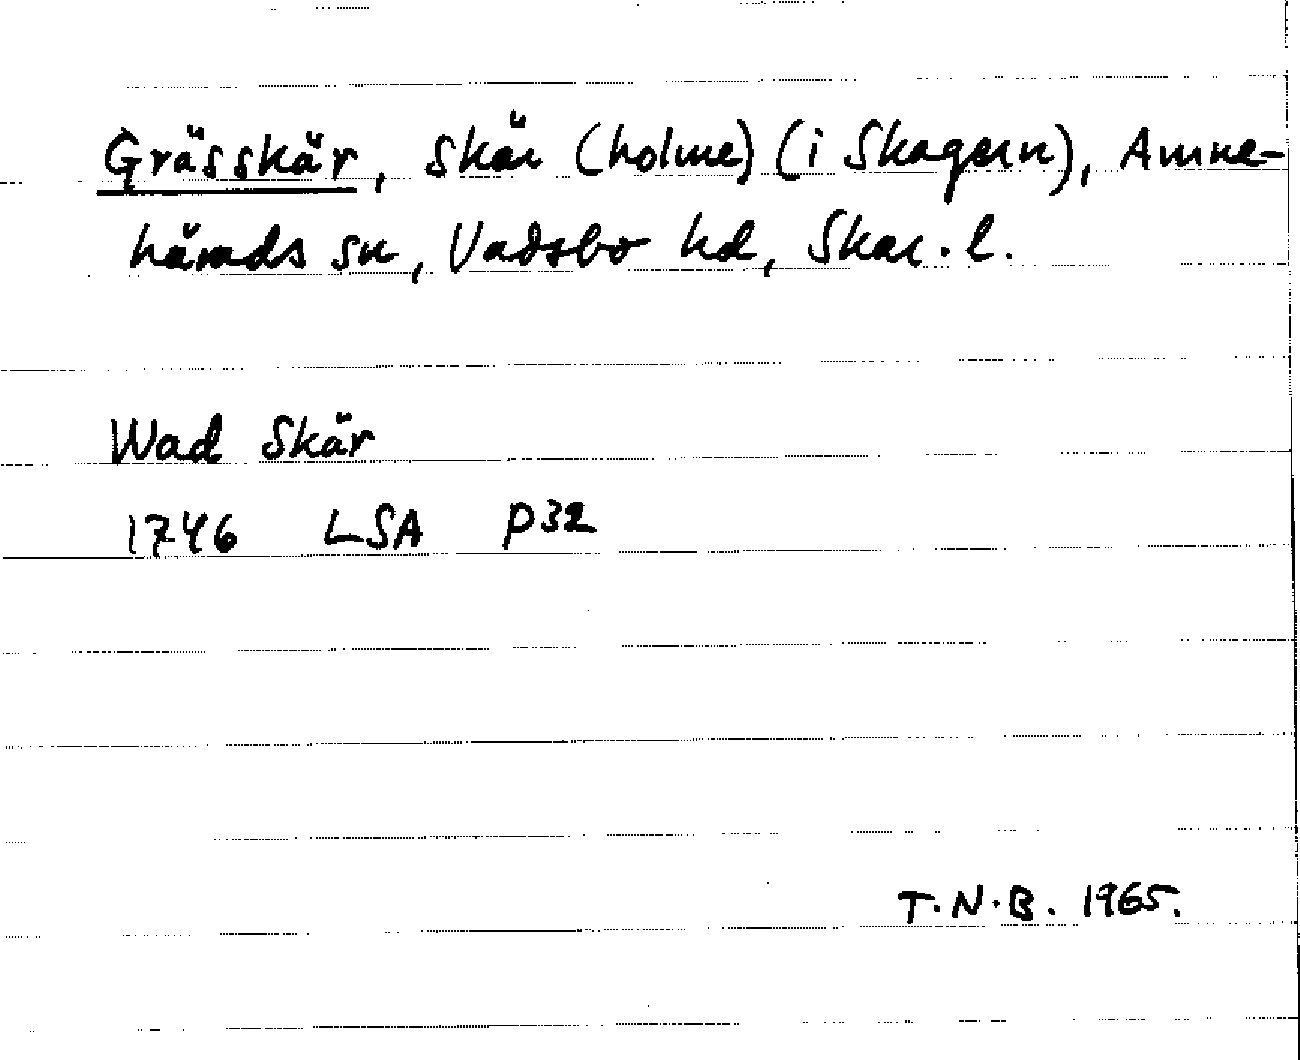 Grässkär, skär (holme) (i Skagern), Amne-
härads sn, Vadsbo hd, Skar. l.
Wad Skär
1746 LSA P32
T.N.B. 1965.